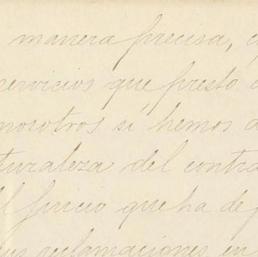 manera precisa,
servicios que presto
nosotros si hemos d
turaleza del contra
l juicio que ha de f
us reclamaciones en